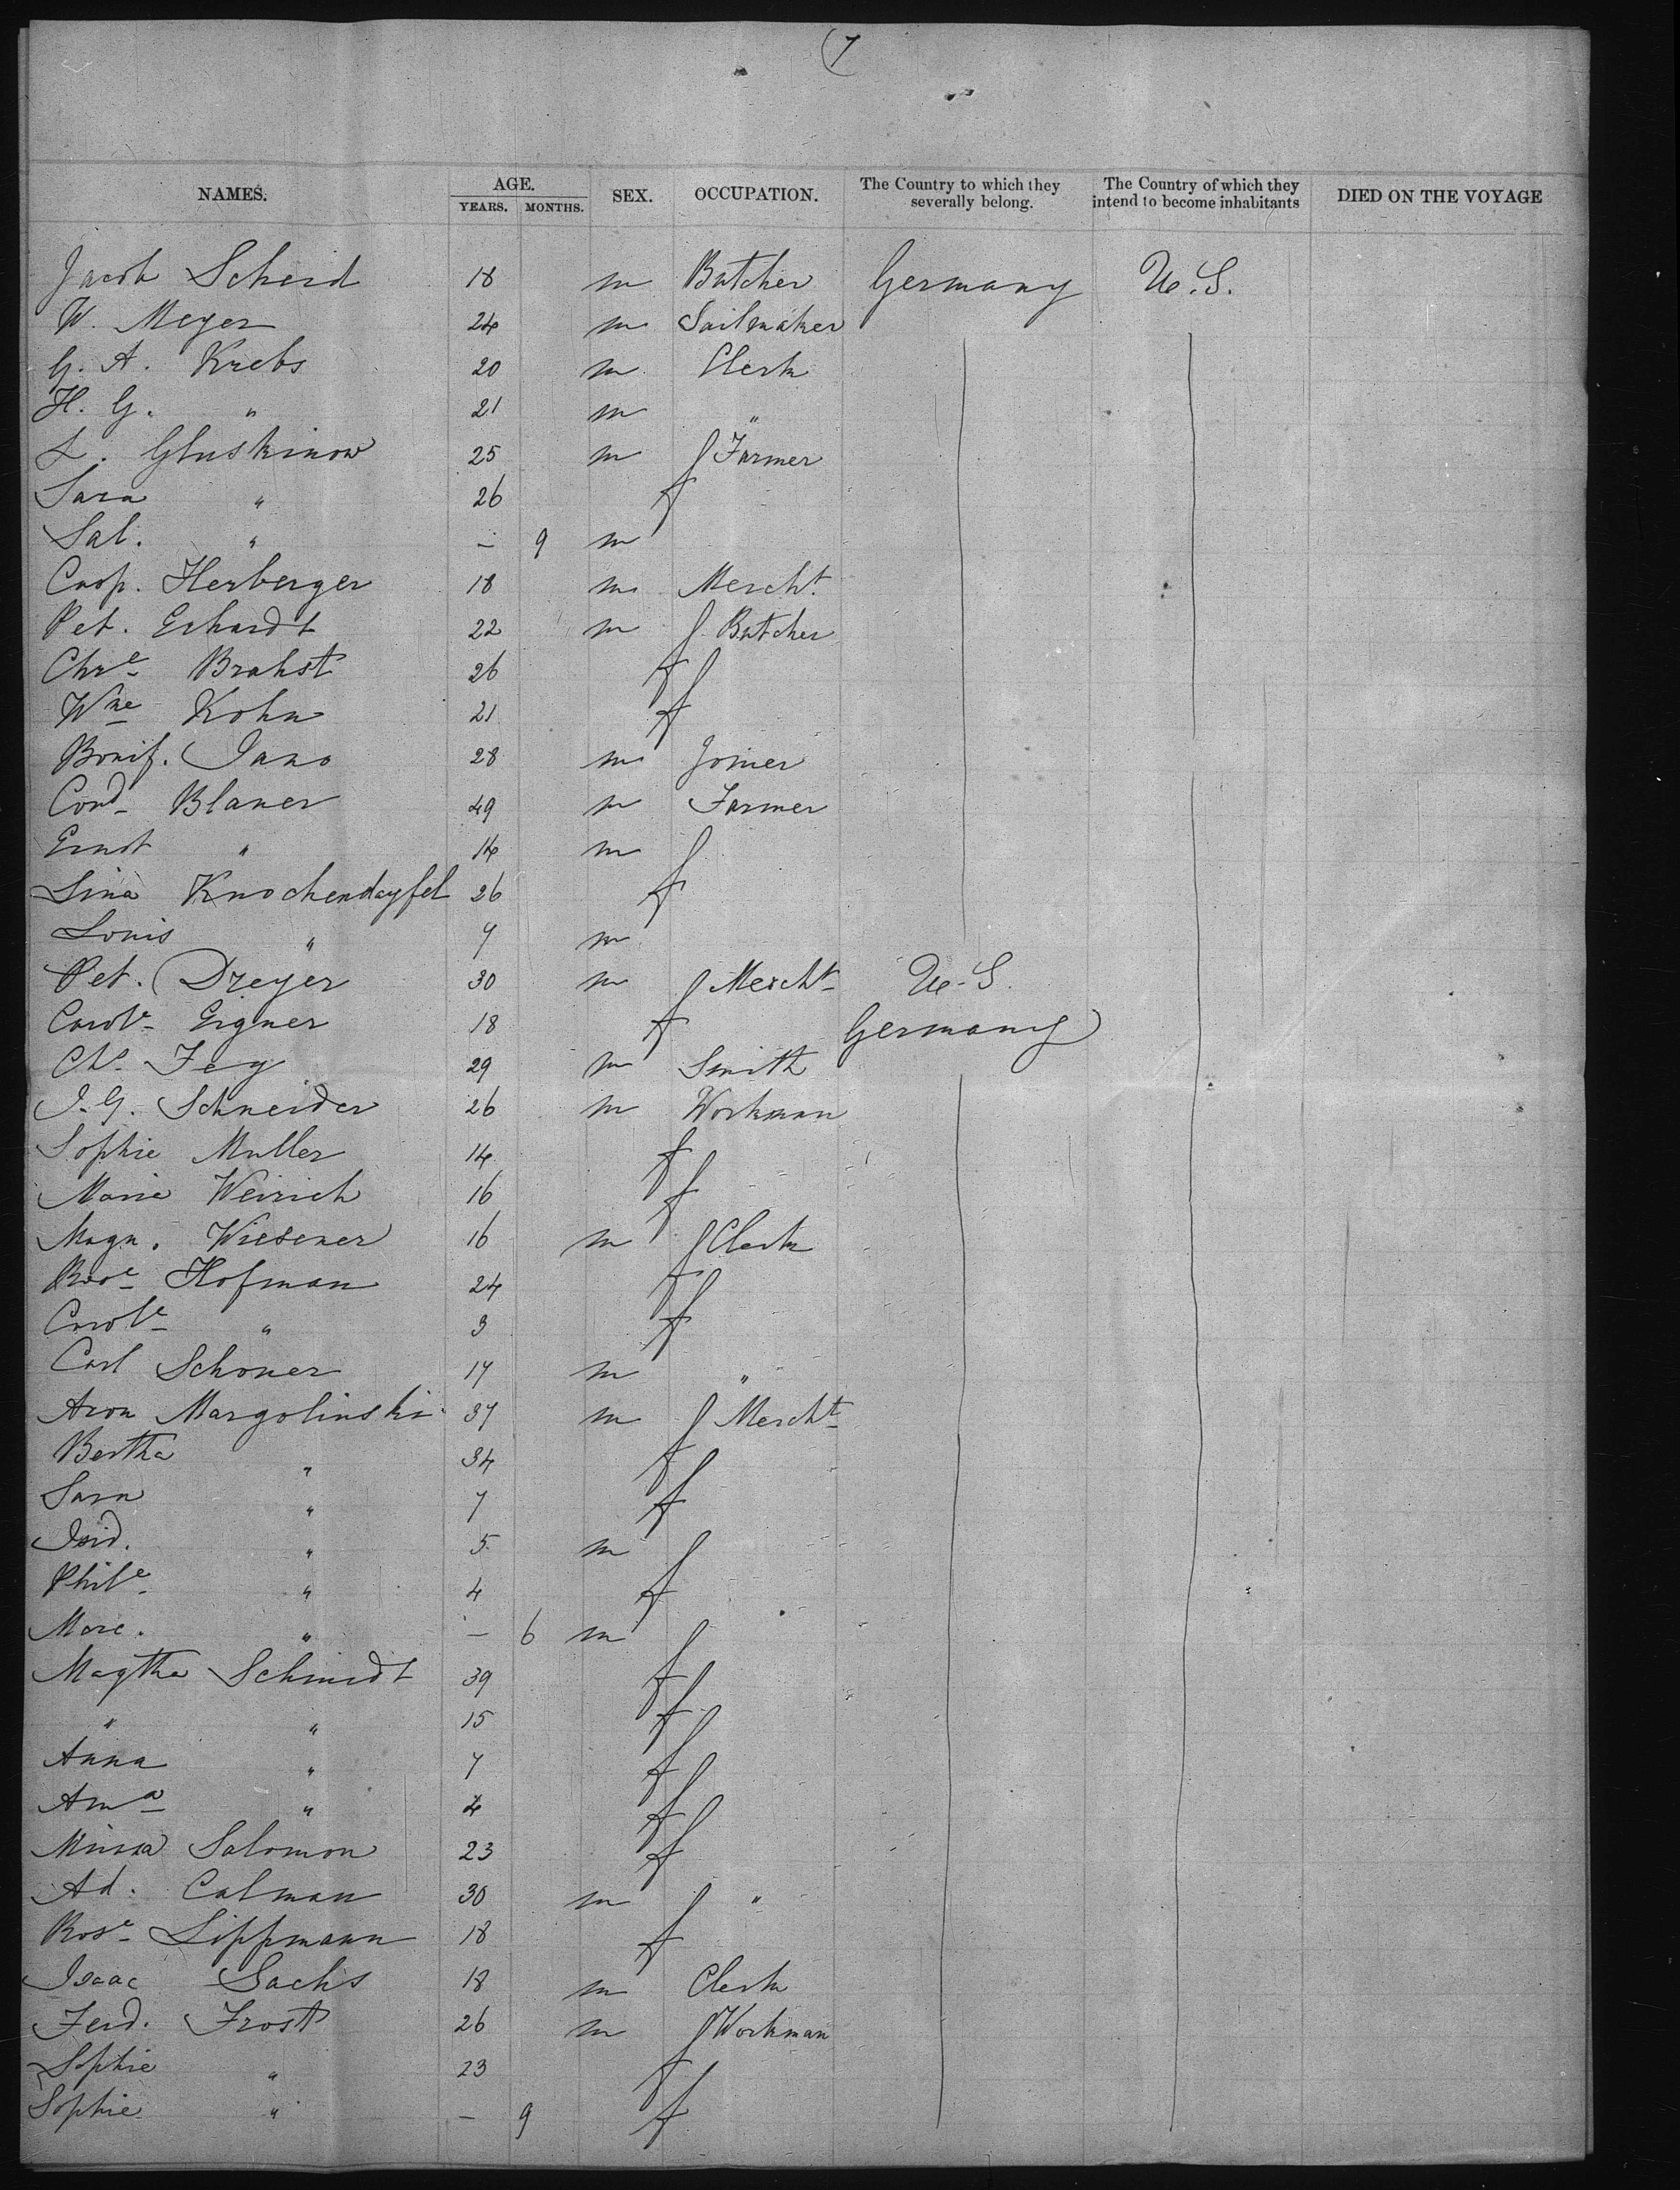 7
NAMES. AGE. YEARS. MONTHS. SEX. OCCUPATION. The Country to which they severally belong. The Country of which they intend to become inhabitants DIED ON THE VOYAGE
Jacob Scheid 18 m Butcher Germany U.S.
W. Meyer 24 m Sailmaker
G. A. Krebs 20 m Clerk
H. G. " 21 m "
L. Gluskinow 25 m Farmer
Sara " 26 f
Sal. " – 9 m
Casp. Herberger 18 m Mercht.
Pet. Erhardt 22 m Butcher
Chre Brahst 26 f
Wne Kohn 21 f
Bonif. Jano 28 m Joiner
Cond Blaner 49 m Farmer
Ernst " 14 m
Lina Knochendayfel 26 f
Louis " 7 m
Pet. Dreyer 30 m Mercht U.S.
Carole Eigner 18 f Germany
Chs Fey 29 m Smith
J. G. Schneider 26 m Workman
Sophie Muller 14 f
Marie Weirich 16 f
Magn. Wiesener 16 m Clerk
Rose Hofman 24 f
Carole " 3 f
Carl Schoner 17 m "
Aron Margolinski 37 m Mercht
Bertha " 34 f
Sara " 7 f
Isid. " 5 m
Phile " 4 f
Marc. " – 6 m
Magtha Schmidt 39 f
" " 15 f
Anna " 7 f
Ama " 4 f
Minna Salomon 23 f
Ad. Calman 30 m "
Rose Lippmann 18 f
Isaac Sachs 18 m Clerk
Ferd. Frost 26 m Workman
Sophie " 23 f
Sophie " – 9 f